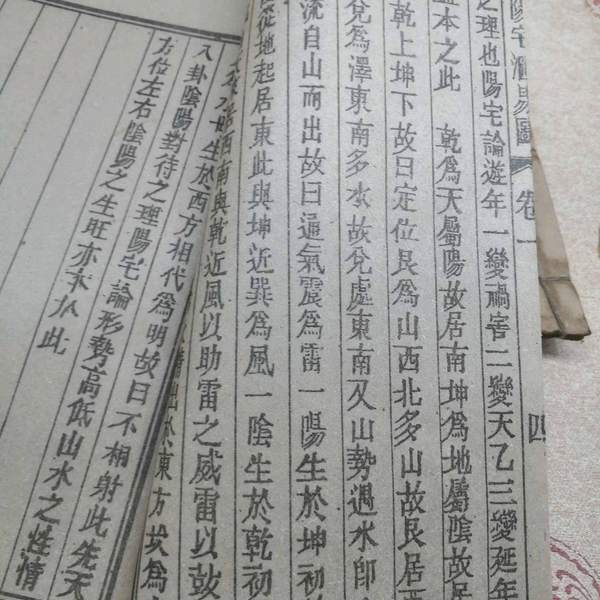 陽宅
卷一
四
之理也陽宅論遊年一變禍害二變天乙三變延年
本之此 乾爲天屬陽故居南坤爲地屬陰故居
乾上坤下故曰定位艮爲山西北多山故艮居西
兌爲澤東南多水故兌處東南又山勢過水即
流自山而出故曰通氣震爲雷一陽生於坤初
從地起居東此與坤近巽爲風一陰生於乾初
居西南與乾近風以助雷之威雷以鼓
於東方故爲
生於西方相代爲明故曰不相射此先天
八卦陰陽對待之理陽宅論形勢高低山水之性情
方位左右陰陽之生旺亦本於此